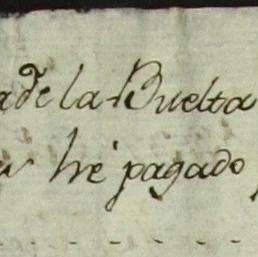 de la Buelta
hé pagado